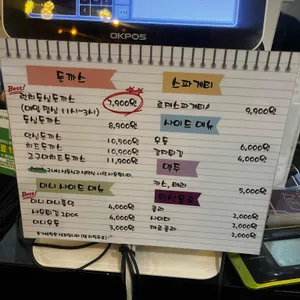 OKPOS
돈까스
Best!
런치등심돈까스 7,900원
(평일 11시~3시)
등심돈까스 8,900원
안심돈까스 10,500원
치즈돈까스 10,900원
고구마치즈돈까스 11,900원
미니 사이드 메뉴
Best!
미니 4,000원
새우튀김 2pcs 4,000원
미니우동 3,000원
스파게티
스파게티 9,900원
사이드 메뉴
우동 6,000원
감자튀김 4,000원
맥주
카스, 테라 5,000원
탄산음료
콜라 2,000원
사이다 2,000원
2,000원